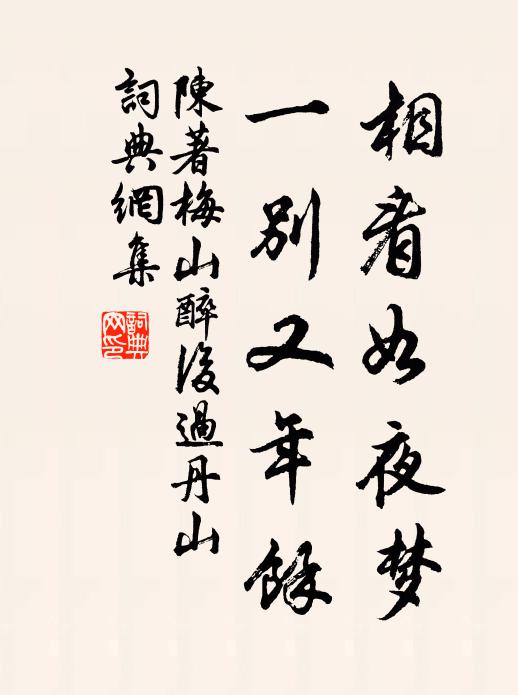 相看如夜梦
一别又年餘
陳著梅山醉後過丹山
詞典網集
詞典網印